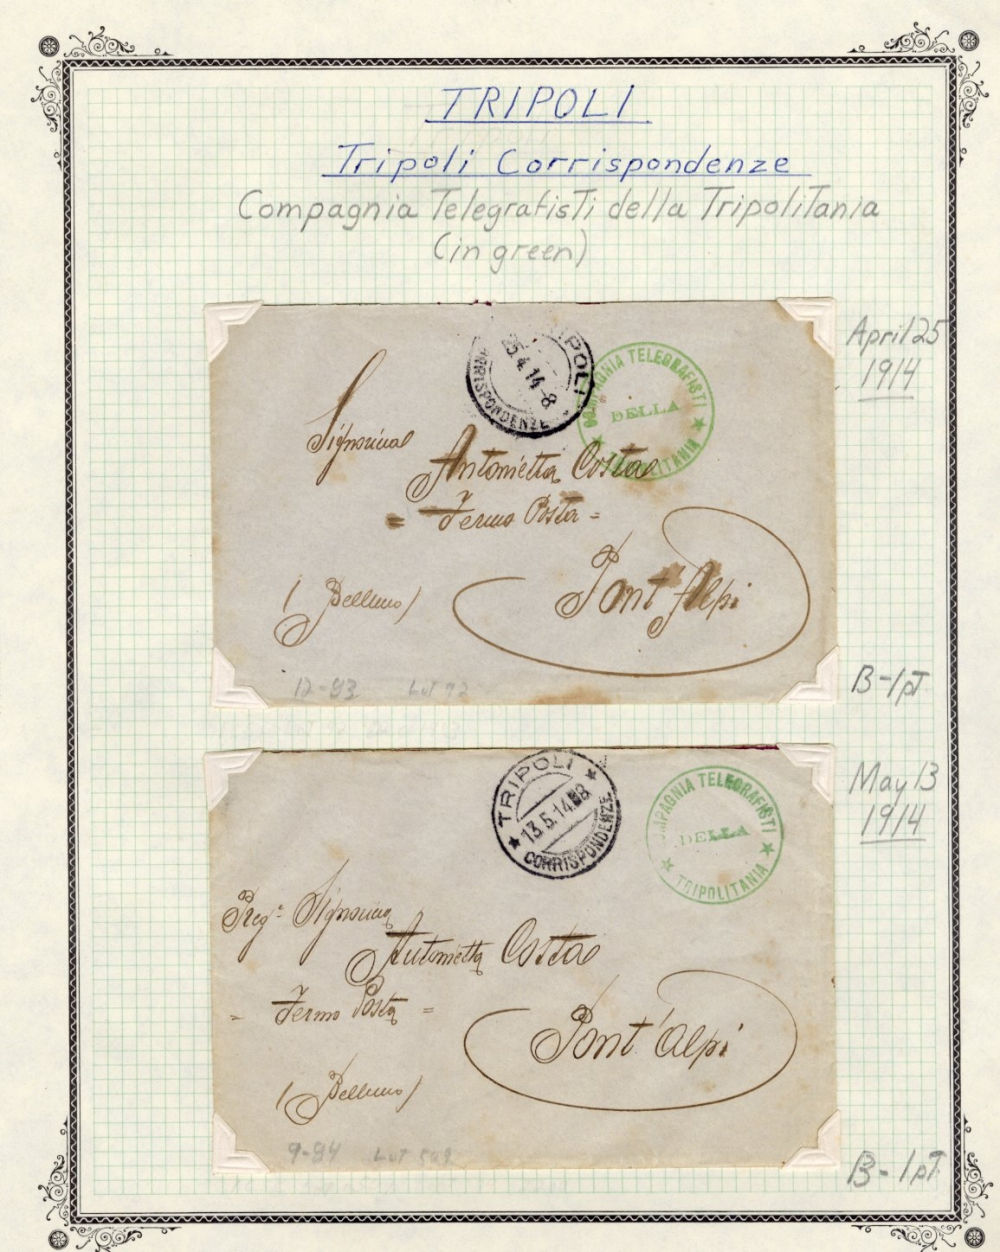 TRIPOLI
Tripoli Corrispondenze
Compagnia Telegrafisti della Tripolitania
(in green)
April 25
1914
TRIPOLI
25.4.14-8
CORRISPONDENZE
COMPAGNIA TELEGRAFISTI
DELLA
TRIPOLITANIA
Signorina
Antonietta Costa
= Fermo Posta =
Pont'Alpi
(Belluno)
12-83 Lot 92
B-1pt
May 13
1914
TRIPOLI
13.5.14 8
CORRISPONDENZE
COMPAGNIA TELEGRAFISTI
DELLA
TRIPOLITANIA
Preg. Signorina
Antonietta Costa
= Fermo Posta =
Pont'Alpi
(Belluno)
9-84 Lot
B-1pt